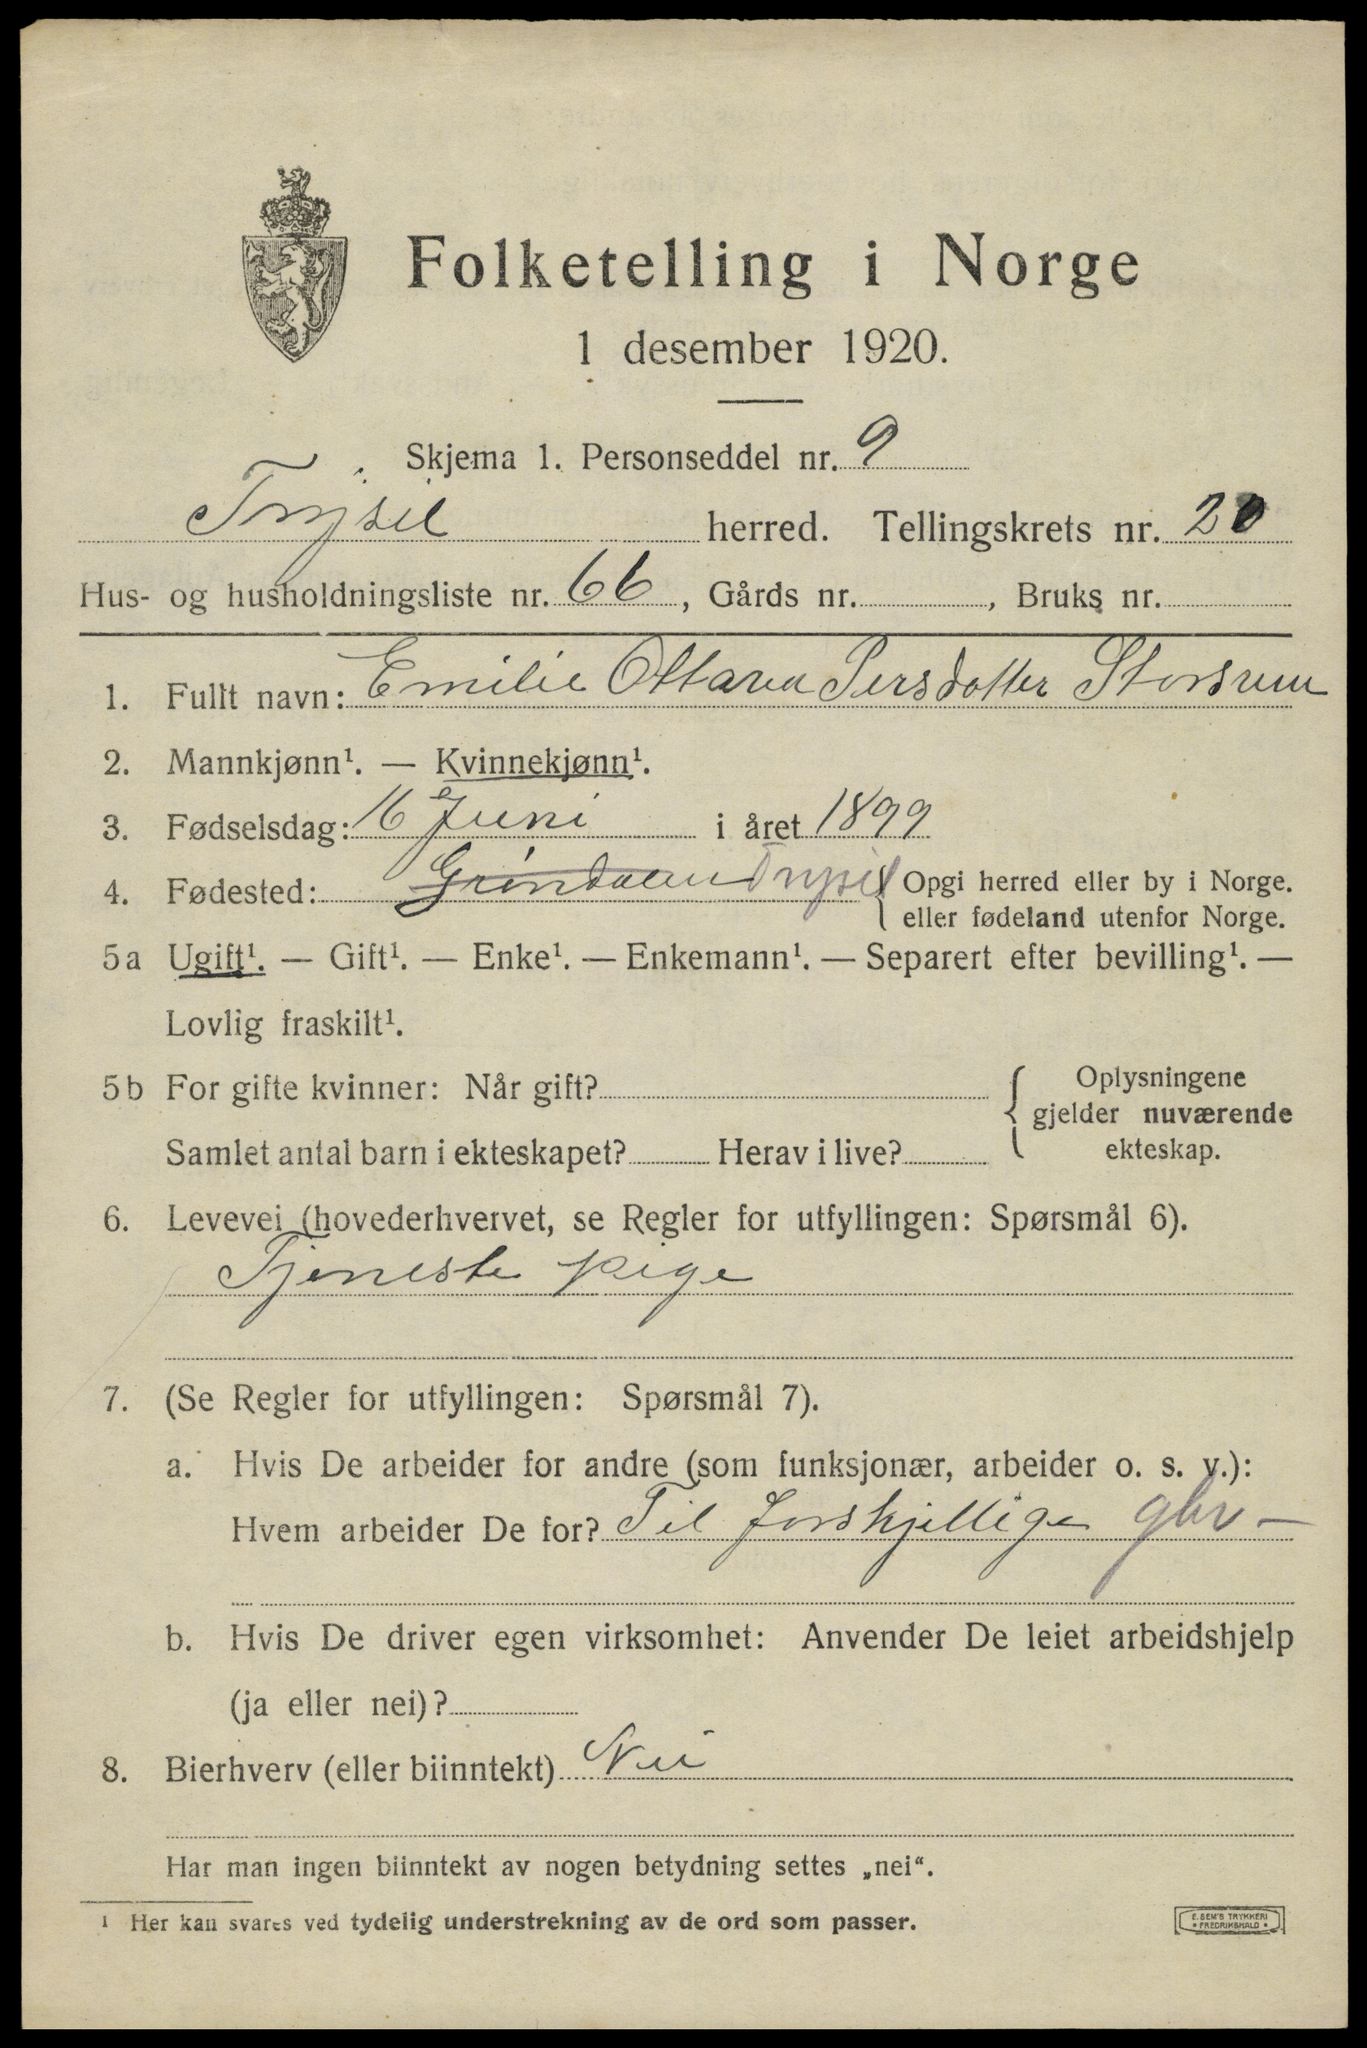 Folketelling i Norge
1 desember 1920.
Skjema 1. Personseddel nr. 9
Trysil herred. Tellingskrets nr. 20
Hus- og husholdningsliste nr. 66, Gårds nr. , Bruks nr.
1. Fullt navn: Emilie Ottava Persdotter
2. Mannkjønn¹. — Kvinnekjønn¹.
3. Fødselsdag: 16 Juni i året 1899
4. Fødested: Gröndalen Trysil { Opgi herred eller by i Norge.
eller fødeland utenfor Norge.
5a Ugift¹. — Gift¹. — Enke¹. — Enkemann¹. — Separert efter bevilling¹. —
Lovlig fraskilt¹.
5b For gifte kvinner: Når gift? { Oplysningene
gjelder nuværende
Samlet antal barn i ekteskapet? Herav i live? ekteskap.
6. Levevei (hovederhvervet, se Regler for utfyllingen: Spørsmål 6).
Tjeneste pige
7. (Se Regler for utfyllingen: Spørsmål 7).
a. Hvis De arbeider for andre (som funksjonær, arbeider o. s. v.):
Hvem arbeider De for? Til forskjellige gbr —
b. Hvis De driver egen virksomhet: Anvender De leiet arbeidshjelp
(ja eller nei)?
8. Bierhverv (eller biinntekt) Nei
Har man ingen biinntekt av nogen betydning settes „nei“.
¹ Her kan svares ved tydelig understrekning av de ord som passer.
E. SEM'S TRYKKERI
* FREDRIKSHALD *